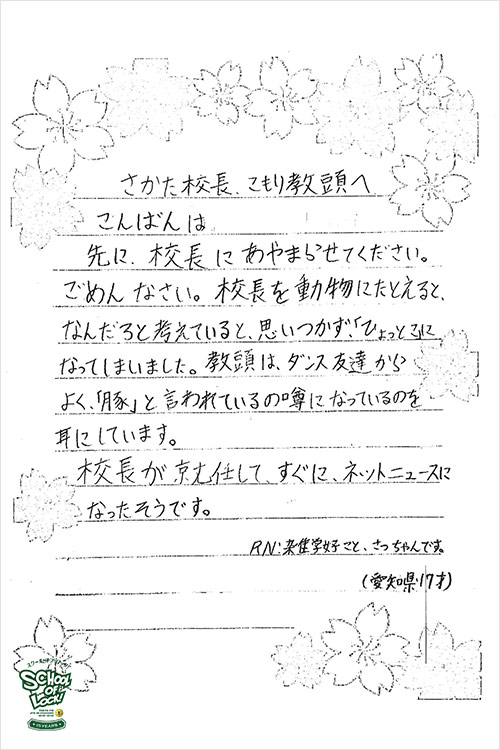 さかた校長、こもり教頭へ
こんばんは
先に、校長にあやまらせてください。
ごめんなさい。校長を動物にたとえると、
なんだろと考えていると、思いつかず、「ひょっとこ」に
なってしまいました。教頭は、ダンス友達から
よく、「豚」と言われているの噂になっているのを
耳にしています。
校長が就任して、すぐに、ネットニュースに
なったそうです。
RN:
好こと、さっちゃんです。
(愛知県17才)
SCHOOL
OF
LOCK!